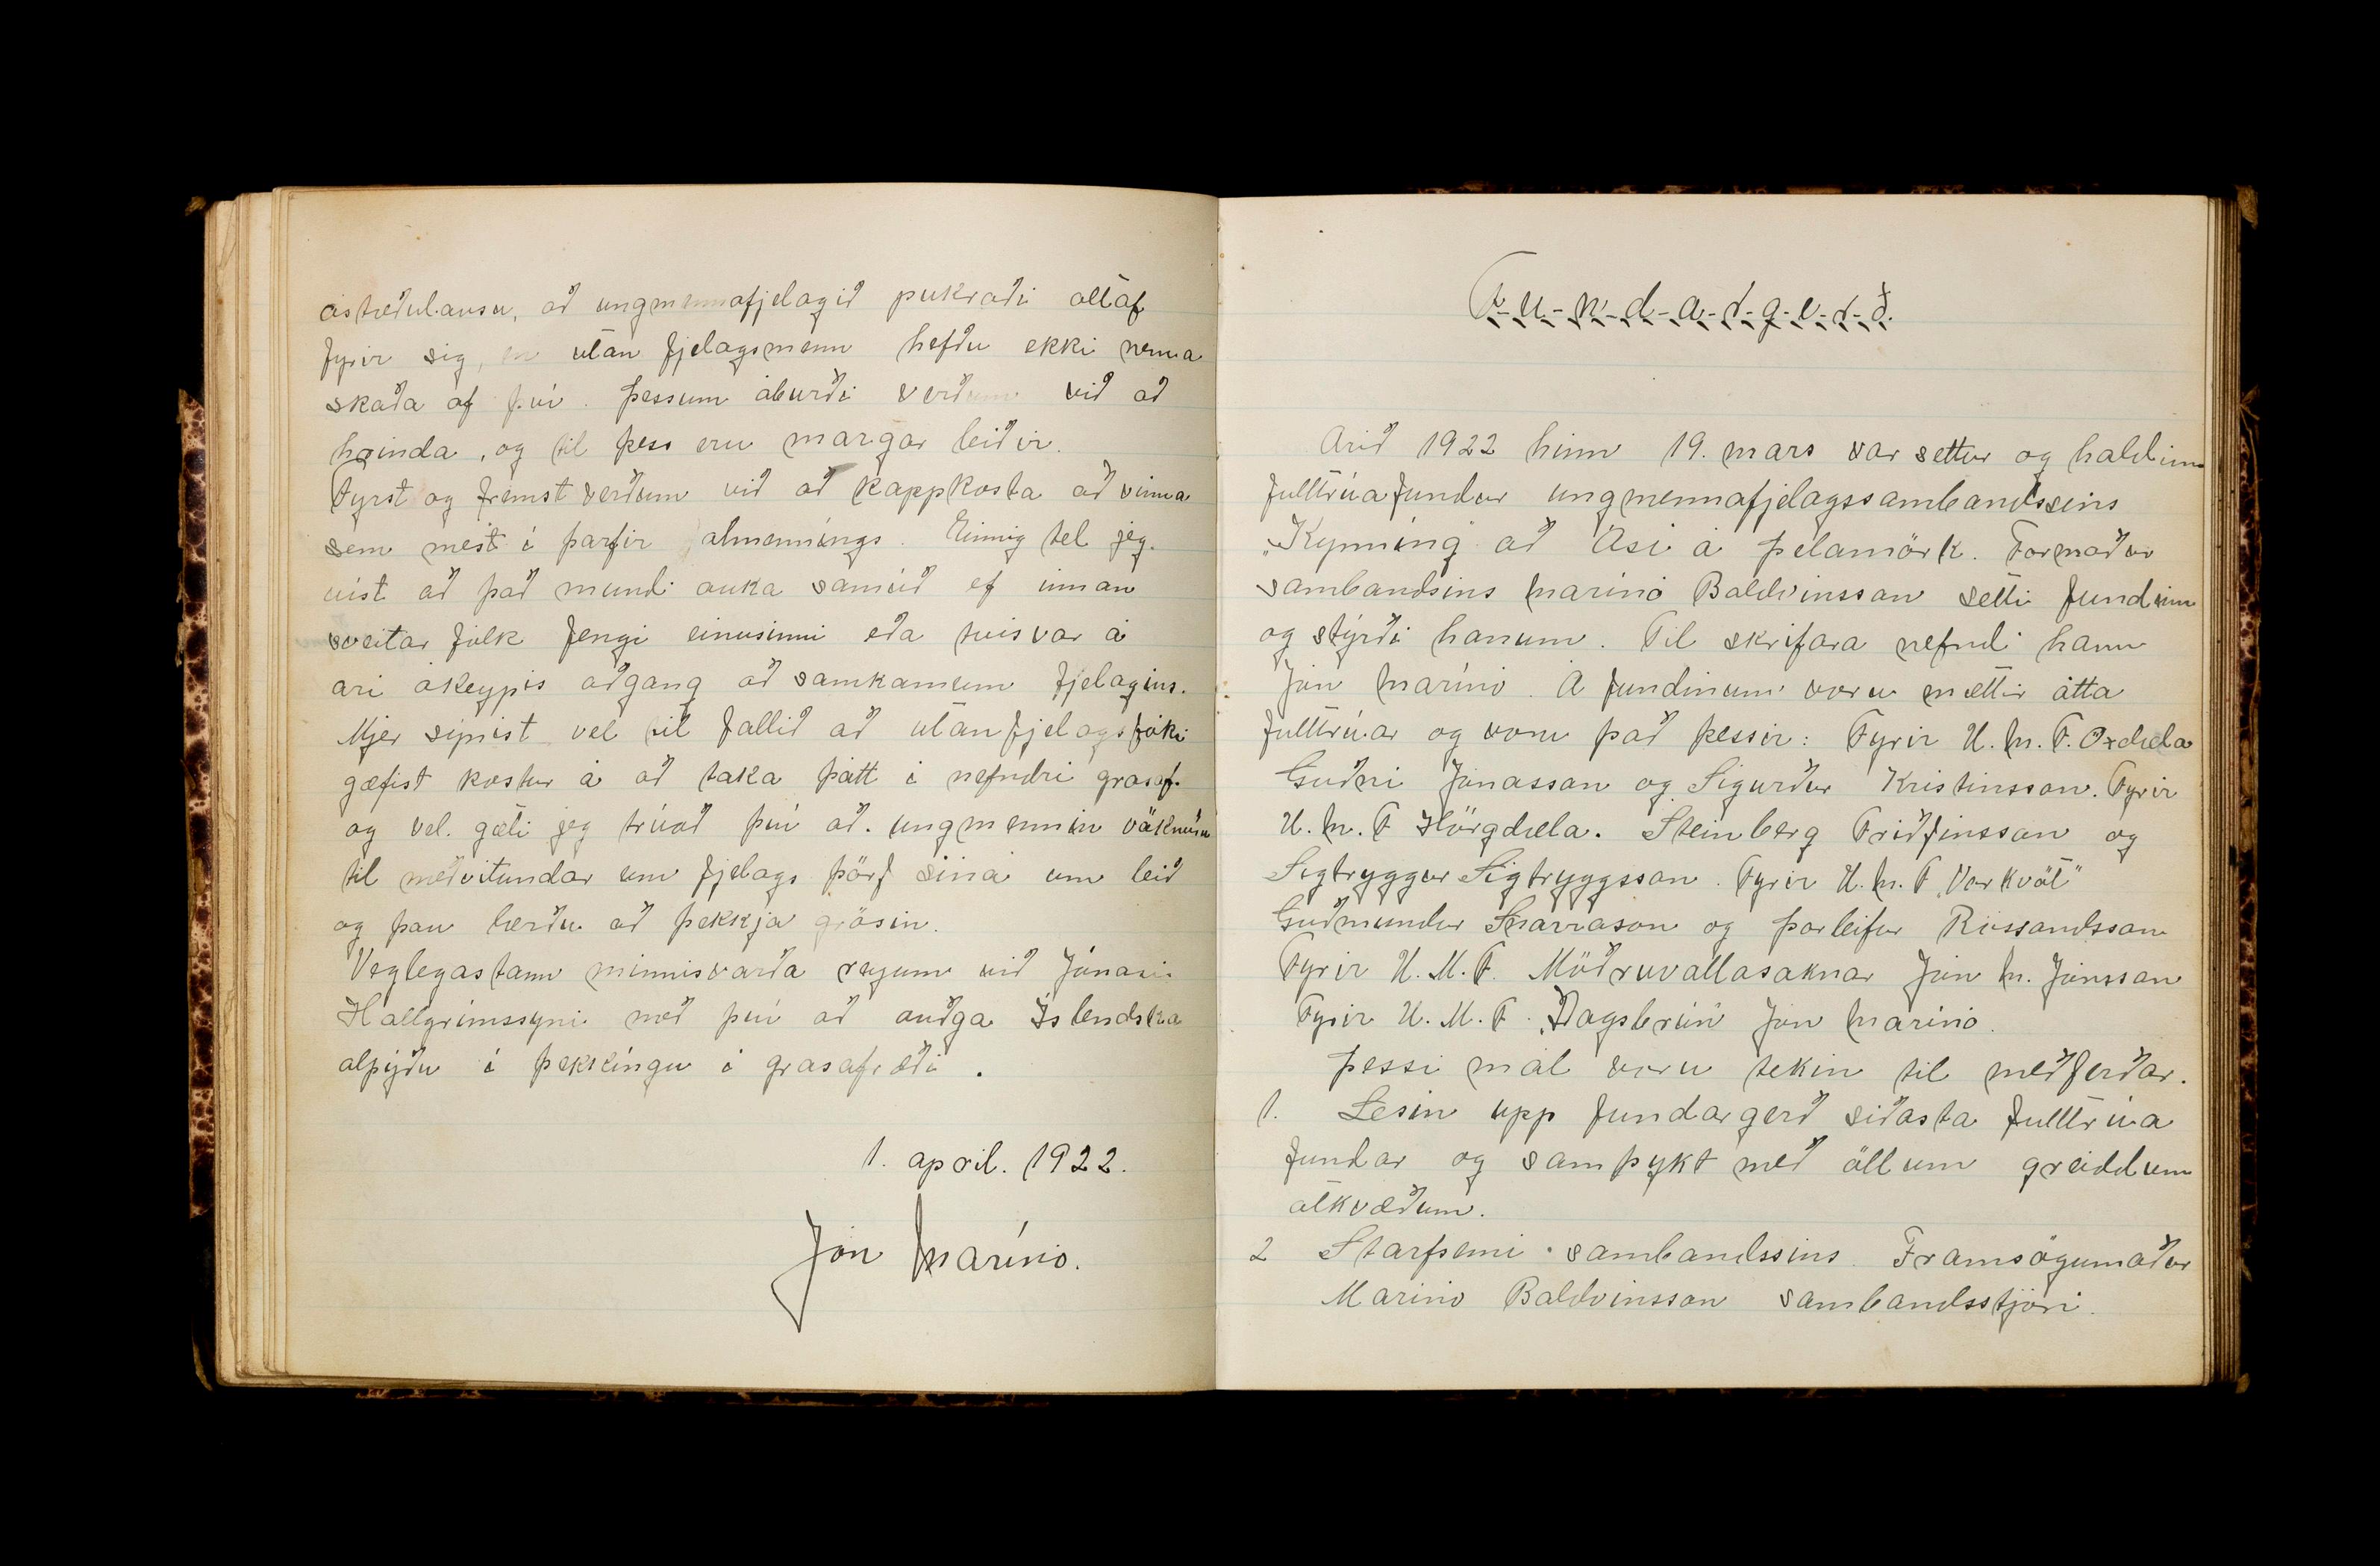 ástæðulausu, að ungmennafjelagið pukraði altaf
fyrir sig, en utan fjelagsmenn hefðu ekki nema
skaða af því. Þessum áburði verðum við að
hrinda, og til þess eru margar leiðir.
Fyrst og fremst verðum við að kappkosta að vinna
sem mest í þarfir almennings. Einnig tel jeg
víst að það mundi auka samúð ef innan
sveitar fólk fengi einusinni eða tvisvar á
ári ókeypis aðgang að samkomum fjelagins.
Mjer sýnist vel til fallið að utanfjelagsfóki
gæfist kostur á að taka þátt í nefndri grasaf.
og vel gæti jeg trúað því að ungmennin vöknuðu
til meðvitundar um fjelags þörf sína um leið
og þau lærðu að þekkja grösin.
Veglegastann minnisvarða reisum við Jónasi
Hallgrímssyni með því að auðga Íslendska
alþýðu í þekkingu í grasafræði.
1. april. 1922.
Jón Marínó.
F-u-n-d-a-r-g-e-r-ð.
Árið 1922 hinn 19. mars var settur og haldinn
fulltrúafundur ungmennafjelagssambandssins
„Kynning" að Ási á Þelamörk. Formaður
sambandsins Marinó Baldvinsson setti fundinn
og stýrði honum. Til skrifara nefndi hann
Jón Marínó. Á fundinum voru mættir átta
fulltrúar og voru það þessir: Fyrir U.M.F. Öxdæla
Guðni Jónasson og Sigurður Kristinsson. Fyrir
U.M.F Hörgdæla. Steinberg Friðfinsson og
Sigtryggur Sigtryggsson. Fyrir U.M.F „Vorkvöt"
Guðmundur Snorrason og Þorleifur Rósandsson
Fyrir U.M.F. Möðruvallasoknar Jón M. Jónsson
Fyrir U.M.F. „Dagsbrún" Jón Marinó.
Þessi mál voru tekin til meðferðar.
1. Lesin upp fundargerð síðasta fulltrúa
fundar og samþykt með öllum greiddum
atkvæðum.
2 Starfsemi sambandssins. Framsögumaður
Marino Baldvinsson sambandsstjóri.